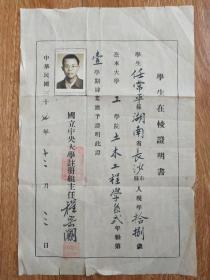 學生在校證明書
學生任常平係湖南省長沙市縣人現年拾捌歲
在本大學工學院土木工程學系弍年級第
壹學期肄業應予證明此證
國立中央大學註冊組主任
中華民國三十七年十二月二日